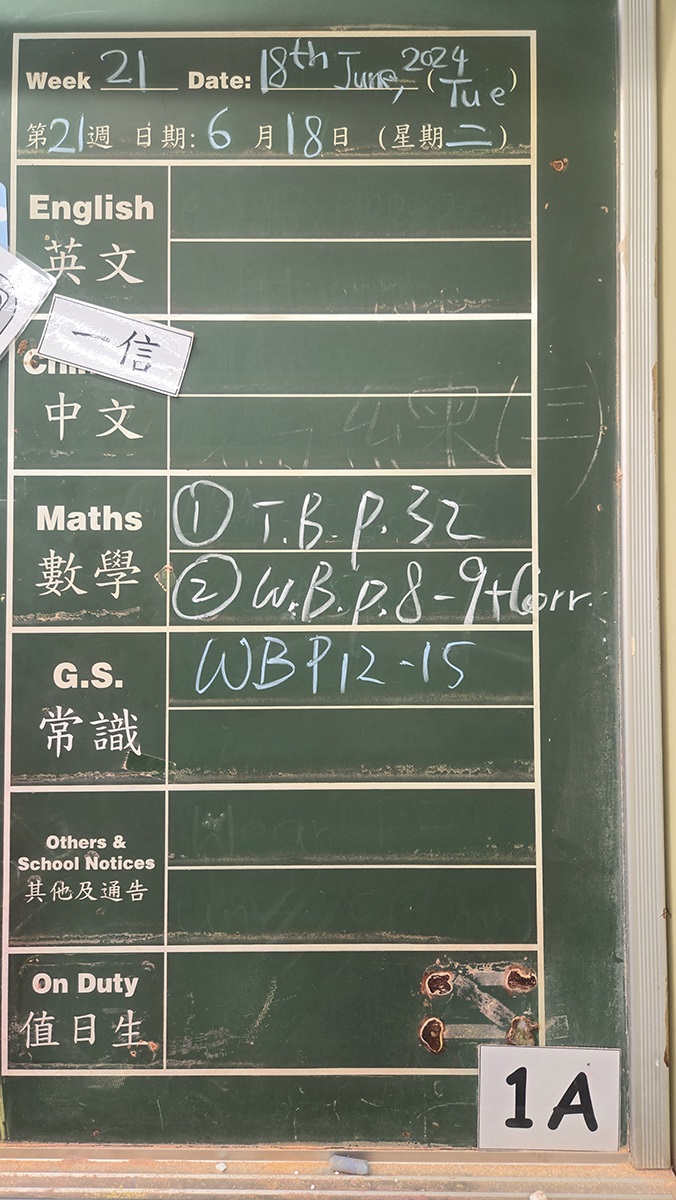 Week 21 Date: 18th June, 2024 (Tue)
第21週 日期: 6月18日 (星期二)
English
英文
一信
中文
Maths
① T.B. p. 32
數學
② W.B. p. 8-9+Corr.
G.S.
WB P12-15
常識
Others &
School Notices
其他及通告
On Duty
值日生
1A